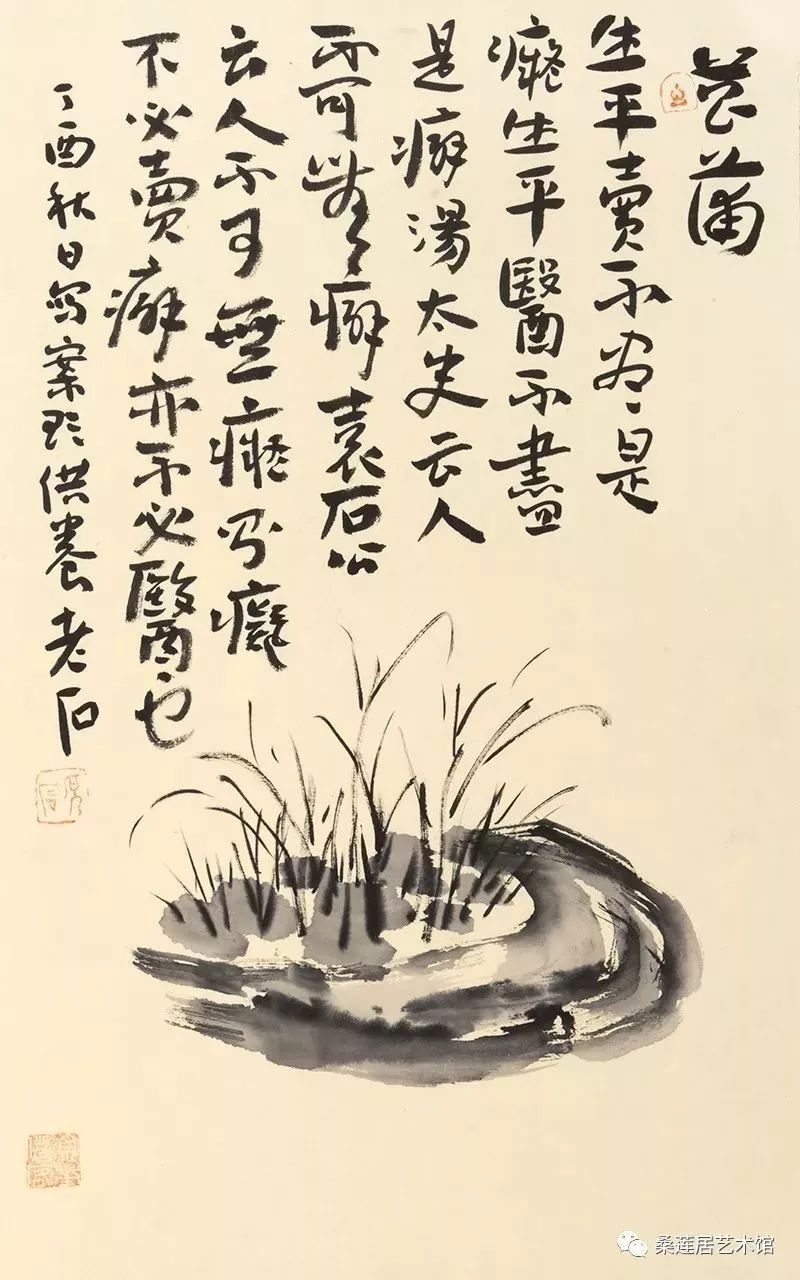 菖蒲
生平賣不尽是
癡生平醫不盡
是癖湯太史云人
不可無癖袁石公
云人不可無癡則癡
不必賣癖亦不必醫也
丁酉秋日寫案供養老石
桑莲居艺术馆